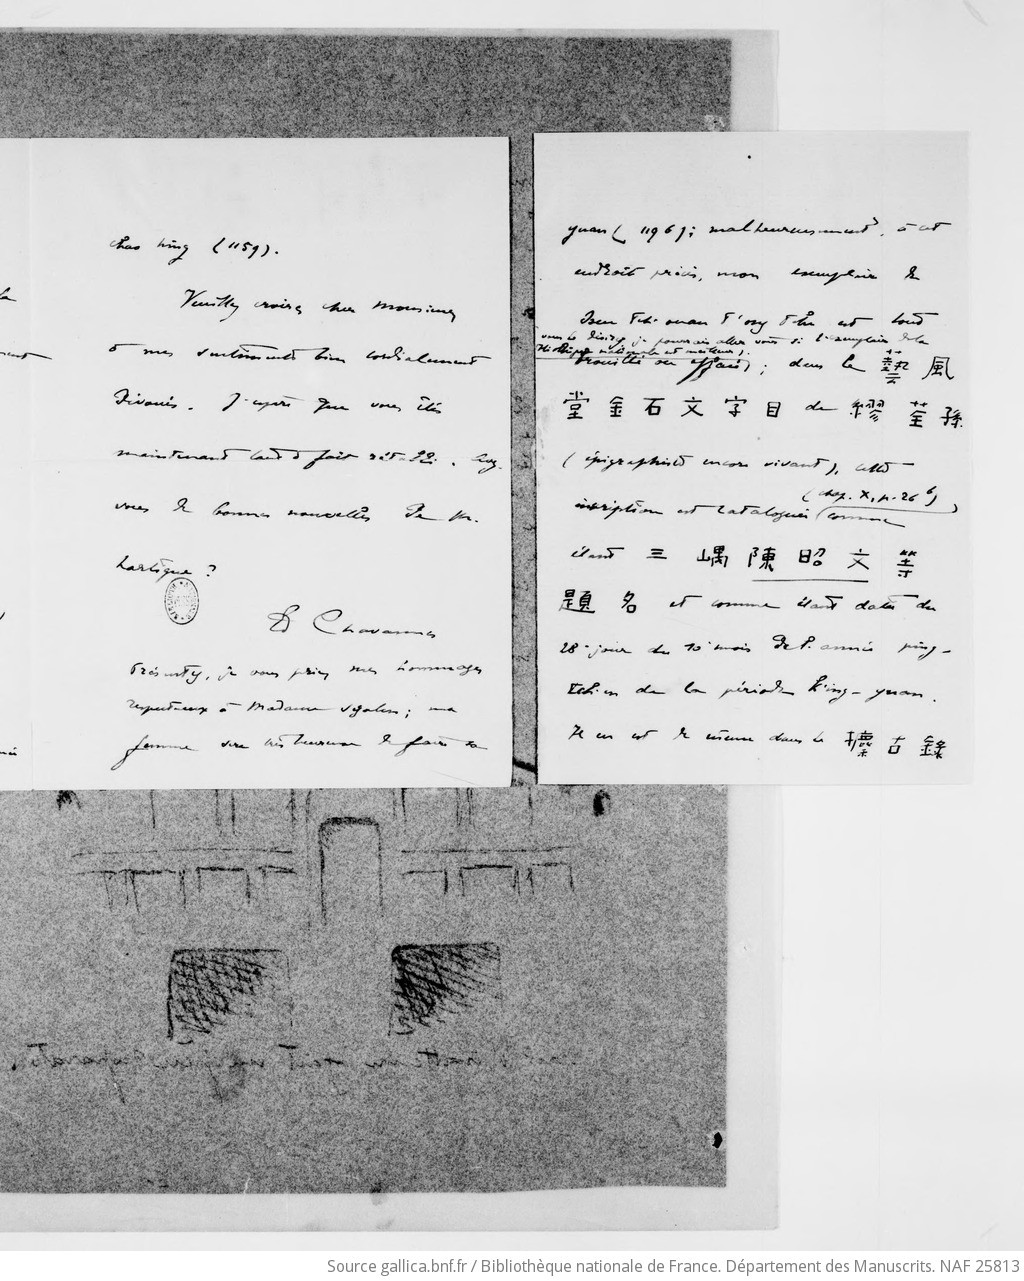 chao hing (1159).
Veuillez croire, cher Monsieur,
à mes sentiments bien cordialement
dévoués. J'espère que vous êtes
maintenant tout à fait rétabli. Avez
vous de bonnes nouvelles de M.
Lartigue ?
Ed Chavannes
Présentez, je vous prie, mes hommages
respectueux à Madame Segalen; ma
femme sera très heureuse de faire sa
yuan (1196); malheureusement, à cet
endroit précis, mon exemplaire du
Sseu tch'ouan t'ong tche est tout
vous le désirez, je pourrais aller voir si l'exemplaire de la
Bibliothèque nationale est meilleur).
brouillé ou effacé); dans le 藝風
堂金石文字目 de 繆荃孫
(épigraphiste encore vivant), cette
(chap. X, p. 26 b)
inscription est cataloguée comme
étant 三嵎陳昭文等
題名 et comme étant datée du
28e jour du 10e mois de l'année ping-
tch'en de la période K'ing-yuan.
Il en est de même dans le 攗古錄